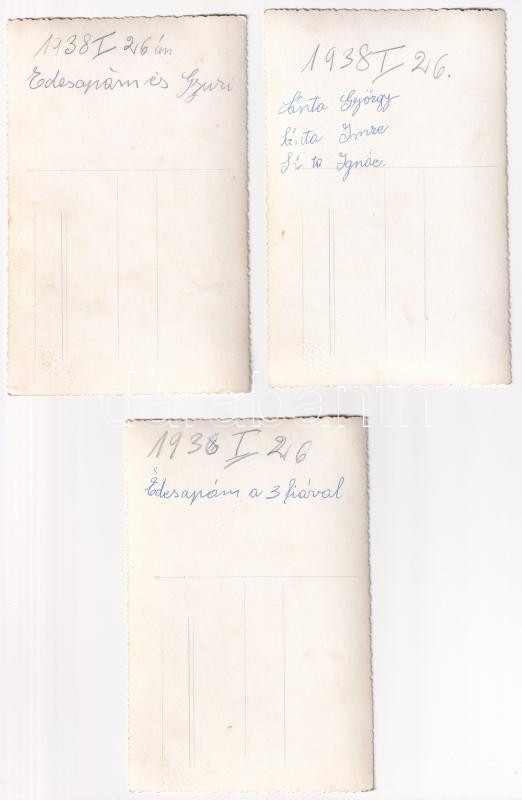 1938 I 26 án
Édesapám és Gyuri
1938 I 26.
Sánta György
Sánta Imre
Ignác.
1938 I 26
Édesapám a 3 fiával
darabanth